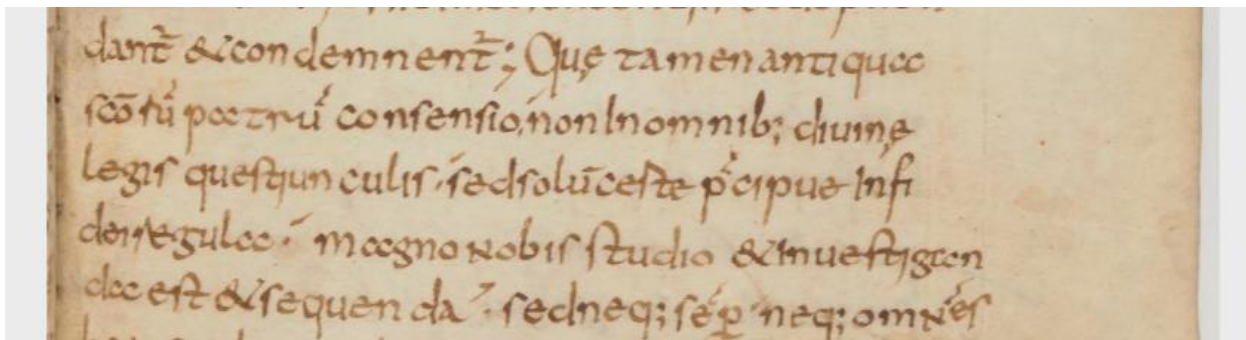 dant̄ & condemnent̄; Quę tamen antiqua
scōrū patrū consensio, non In omnib; diuinę
legis questiunculis. sed solū certe p̄cipue In fi
dei regula. magno nobis studio & Inuestigan
da est & sequenda. sed neq; sēꝑ neq; omnes